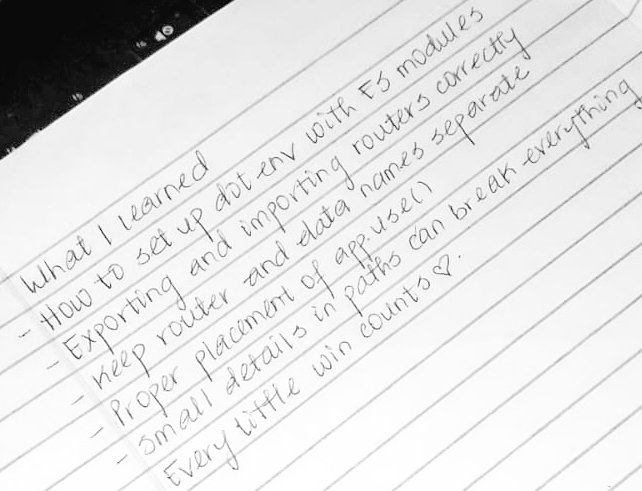 What I learned
- How to set up dot-env with ES modules
- Exporting and importing routers correctly
- Keep router and data names separate
- Proper placement of app.use()
- small details in paths can break everything
Every little win counts ♡.